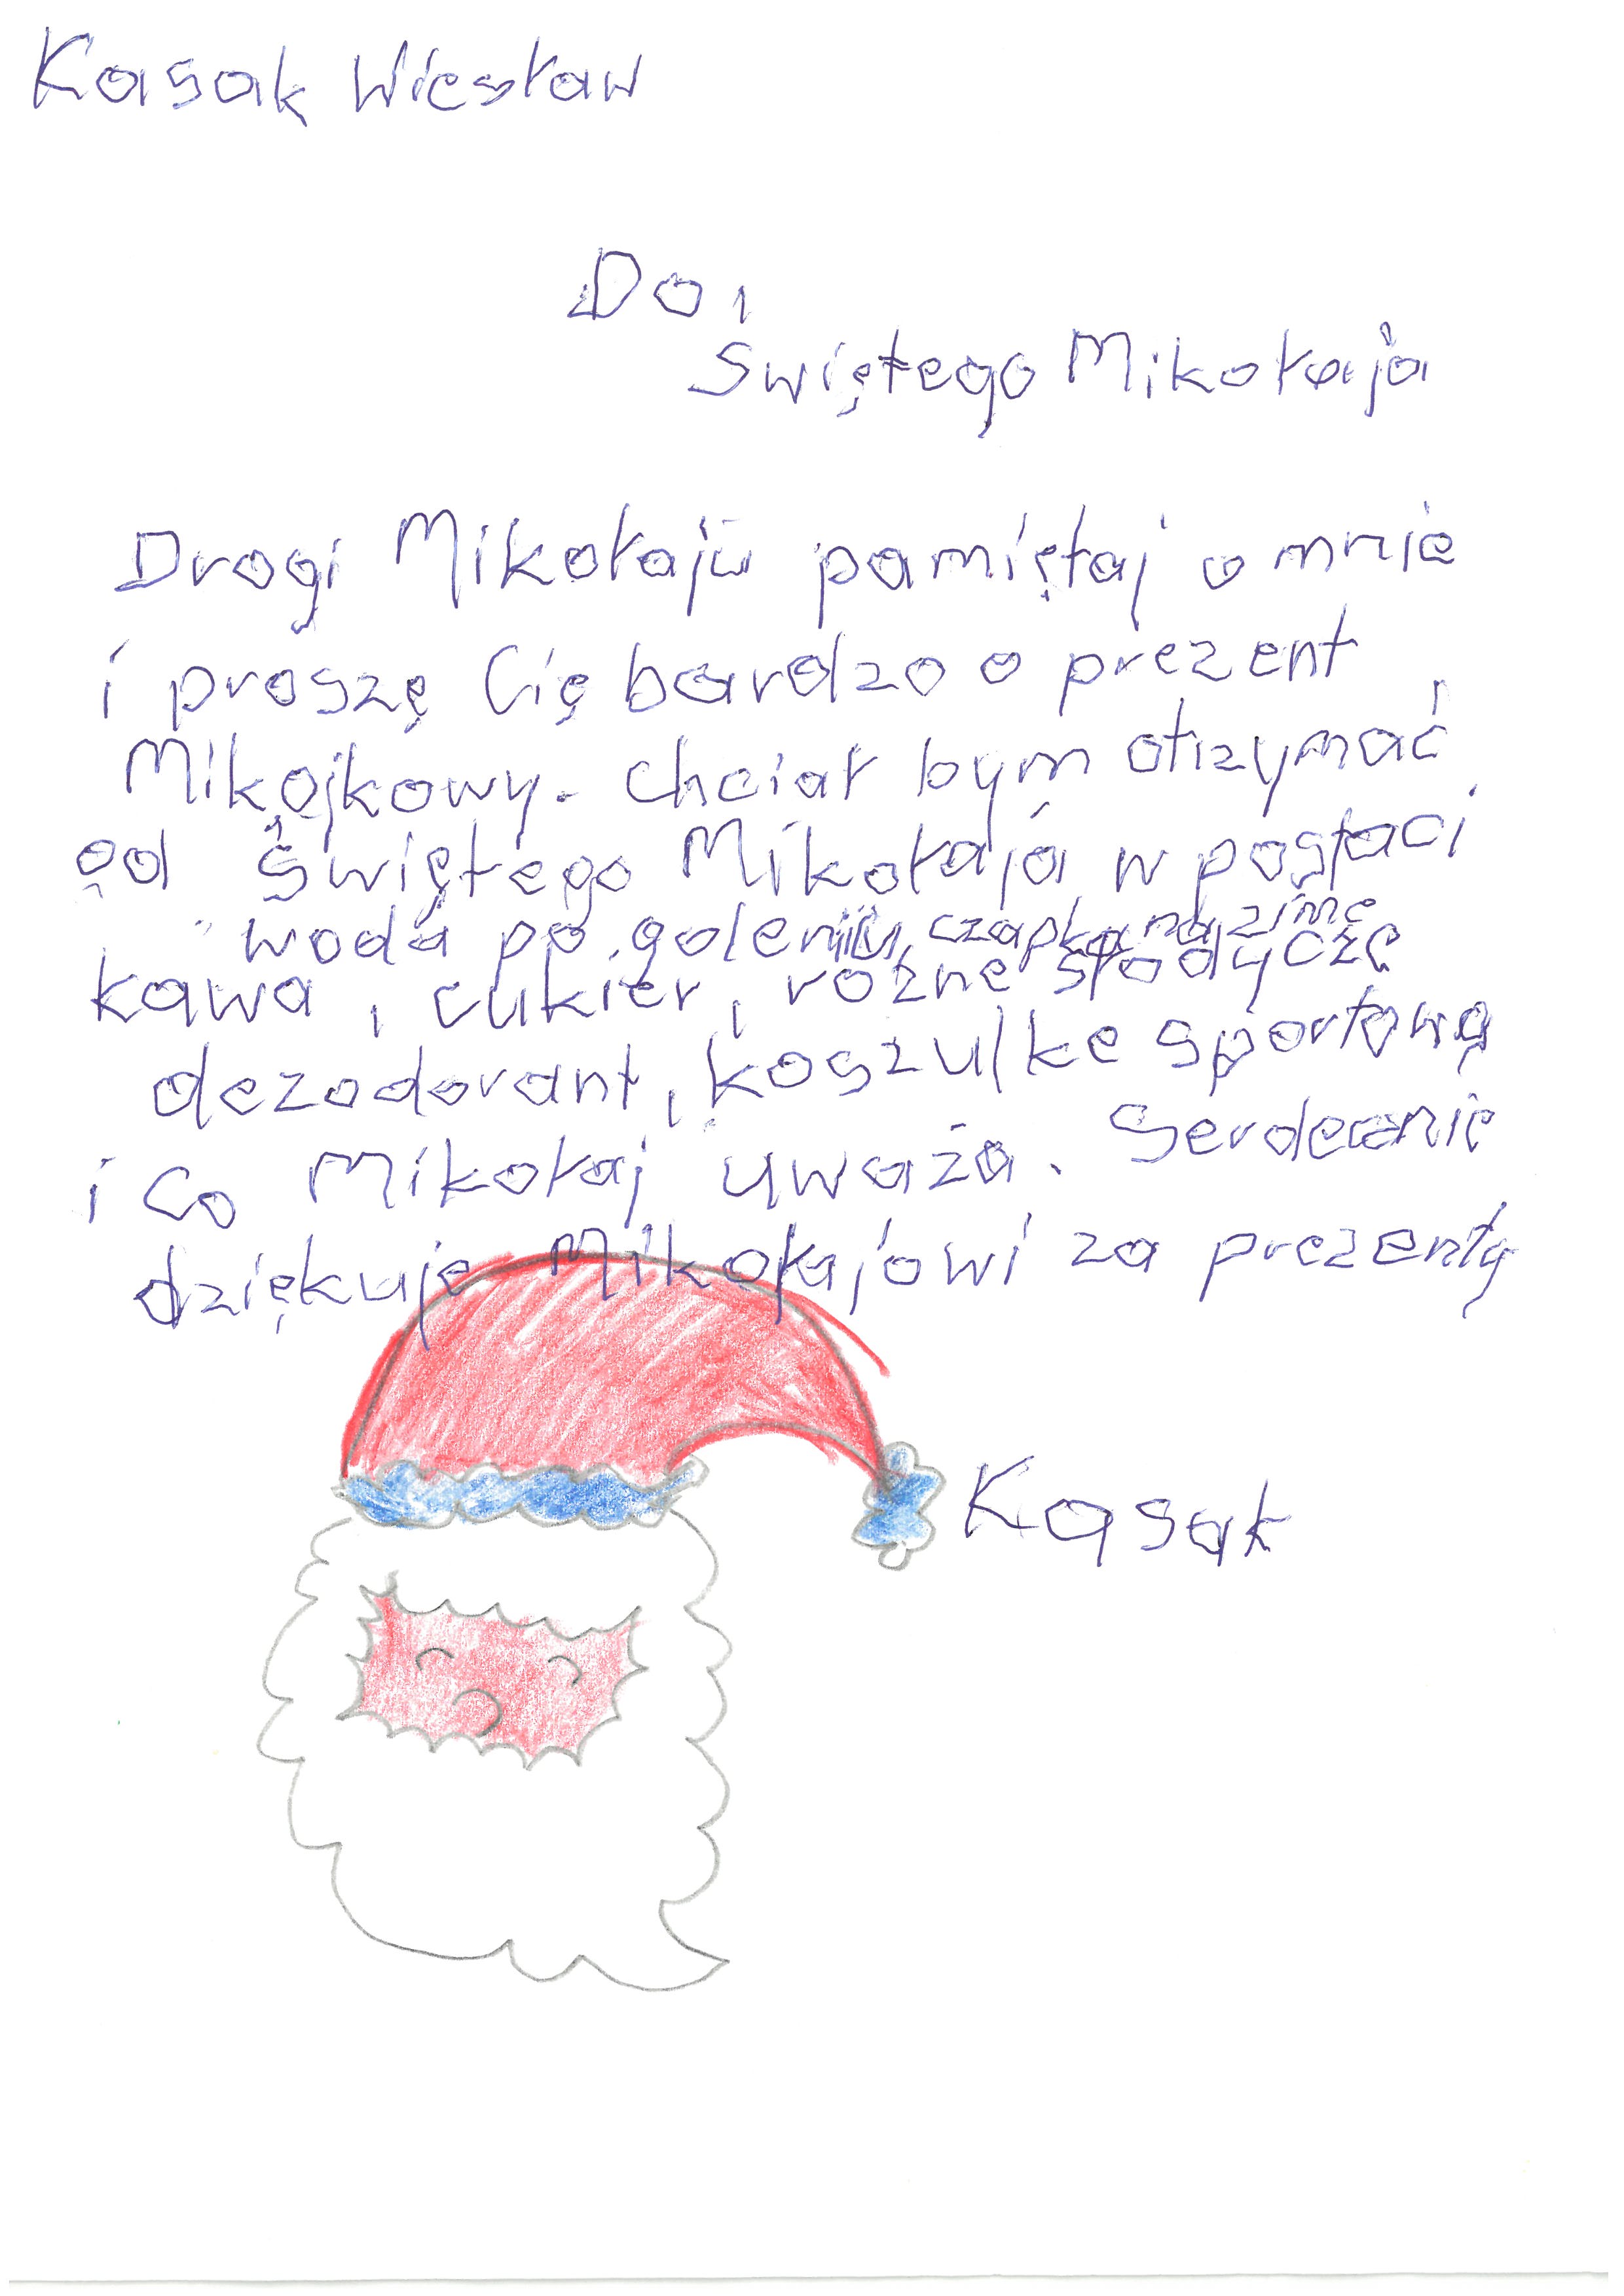 Kasak Wiesław
Do
Świętego Mikołaja
Drogi Mikołaju pamiętaj o mnie
i proszę Cię bardzo o prezent
Mikojkowy. chciał bym otrzymać
od Świętego Mikołaja w postaci
woda po goleniu, czapka na zimę
kawa, cukier, różne słodyczę
dezodorant, koszulke sportową
i co Mikołaj uważa. Serdecznie
dziękuje Mikołajowi za prezenty
Kasak